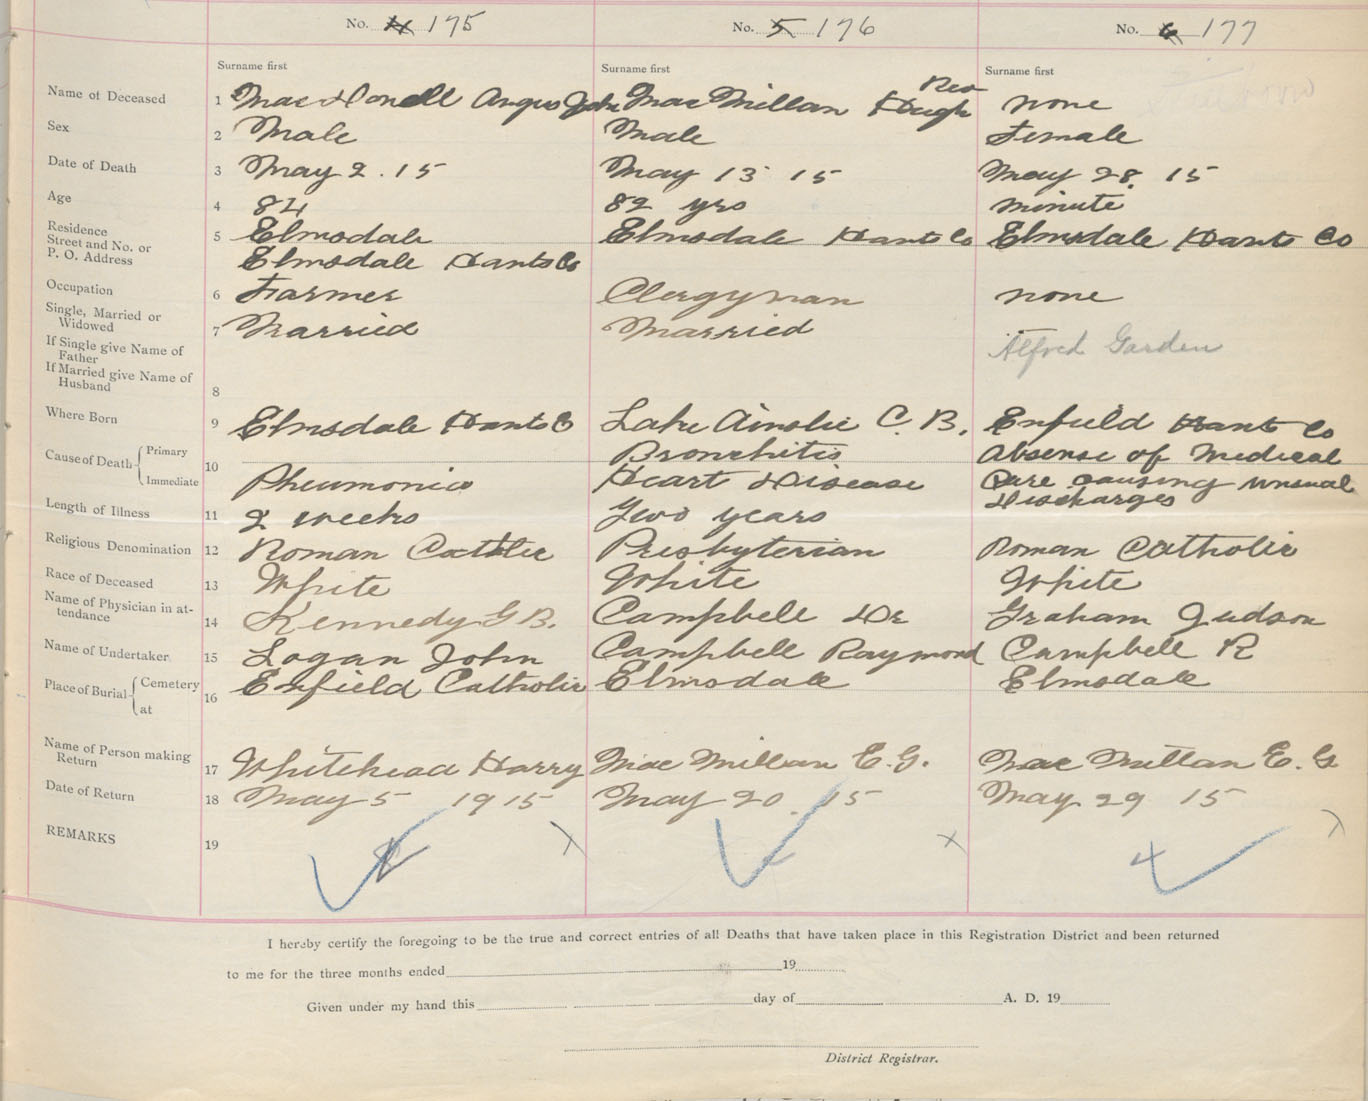 No. 4 175
No. 5 176
No. 6 177
Surname first
Surname first
Surname first
Name of Deceased 1 MacDonell Angus John MacMillan Rev Hugh none
Sex 2 Male Male Female
Date of Death 3 May 2. 15 May 13 15 May 28. 15
Age 4 84 82 yrs minute
Residence
Street and No. or
P. O. Address
5 Elmsdale Elmsdale Hants Co Elmsdale Hants Co
Elmsdale Hants Co
Occupation 6 Farmer Clergyman none
Single, Married or
Widowed
7 Married Married
If Single give Name of
Father
Alfred Garden
If Married give Name of
Husband
8
Where Born 9 Elmsdale Hants Co Lake Ainslie C. B. Enfield Hants Co
Cause of Death Primary 10 Bronchitis Absense of Medical
Immediate Pneumonia Heart Disease Care causing unusual
Discharges
Length of Illness 11 2 weeks Two years
Religious Denomination 12 Roman Catholic Presbyterian Roman Catholic
Race of Deceased 13 White White White
Name of Physician in at-
tendance
14 Kennedy G B. Campbell Dr Graham Judson
Name of Undertaker 15 Logan John Campbell Raymond Campbell R
Place of Burial Cemetery 16 Enfield Catholic Elmsdale Elmsdale
at
Name of Person making
Return
17 Whitehead Harry MacMillan E. G. MacMillan E. G
Date of Return 18 May 5 1915 May 20. 15 May 29 15
REMARKS 19
I hereby certify the foregoing to be the true and correct entries of all Deaths that have taken place in this Registration District and been returned
to me for the three months ended 19
Given under my hand this day of A. D. 19
District Registrar.